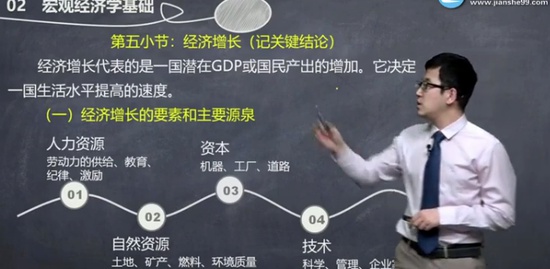 www.jianshe99.com
02 宏观经济学基础
第五小节：经济增长（记关键结论）
经济增长代表的是一国潜在GDP或国民产出的增加。它决定
一国生活水平提高的速度。
（一）经济增长的要素和主要源泉
人力资源
劳动力的供给、教育、
纪律、激励
资本
机器、工厂、道路
01
02
03
04
自然资源
土地、矿产、燃料、环境质量
技术
科学、管理、企业